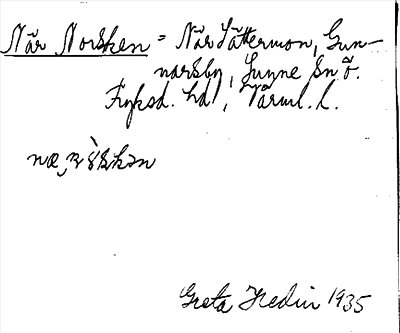 När Norsken = När Sättermon, Gun-
narsby, Sunne sn Ö.
Fryksd. hd, Värml. l.
Greta Hedin 1935